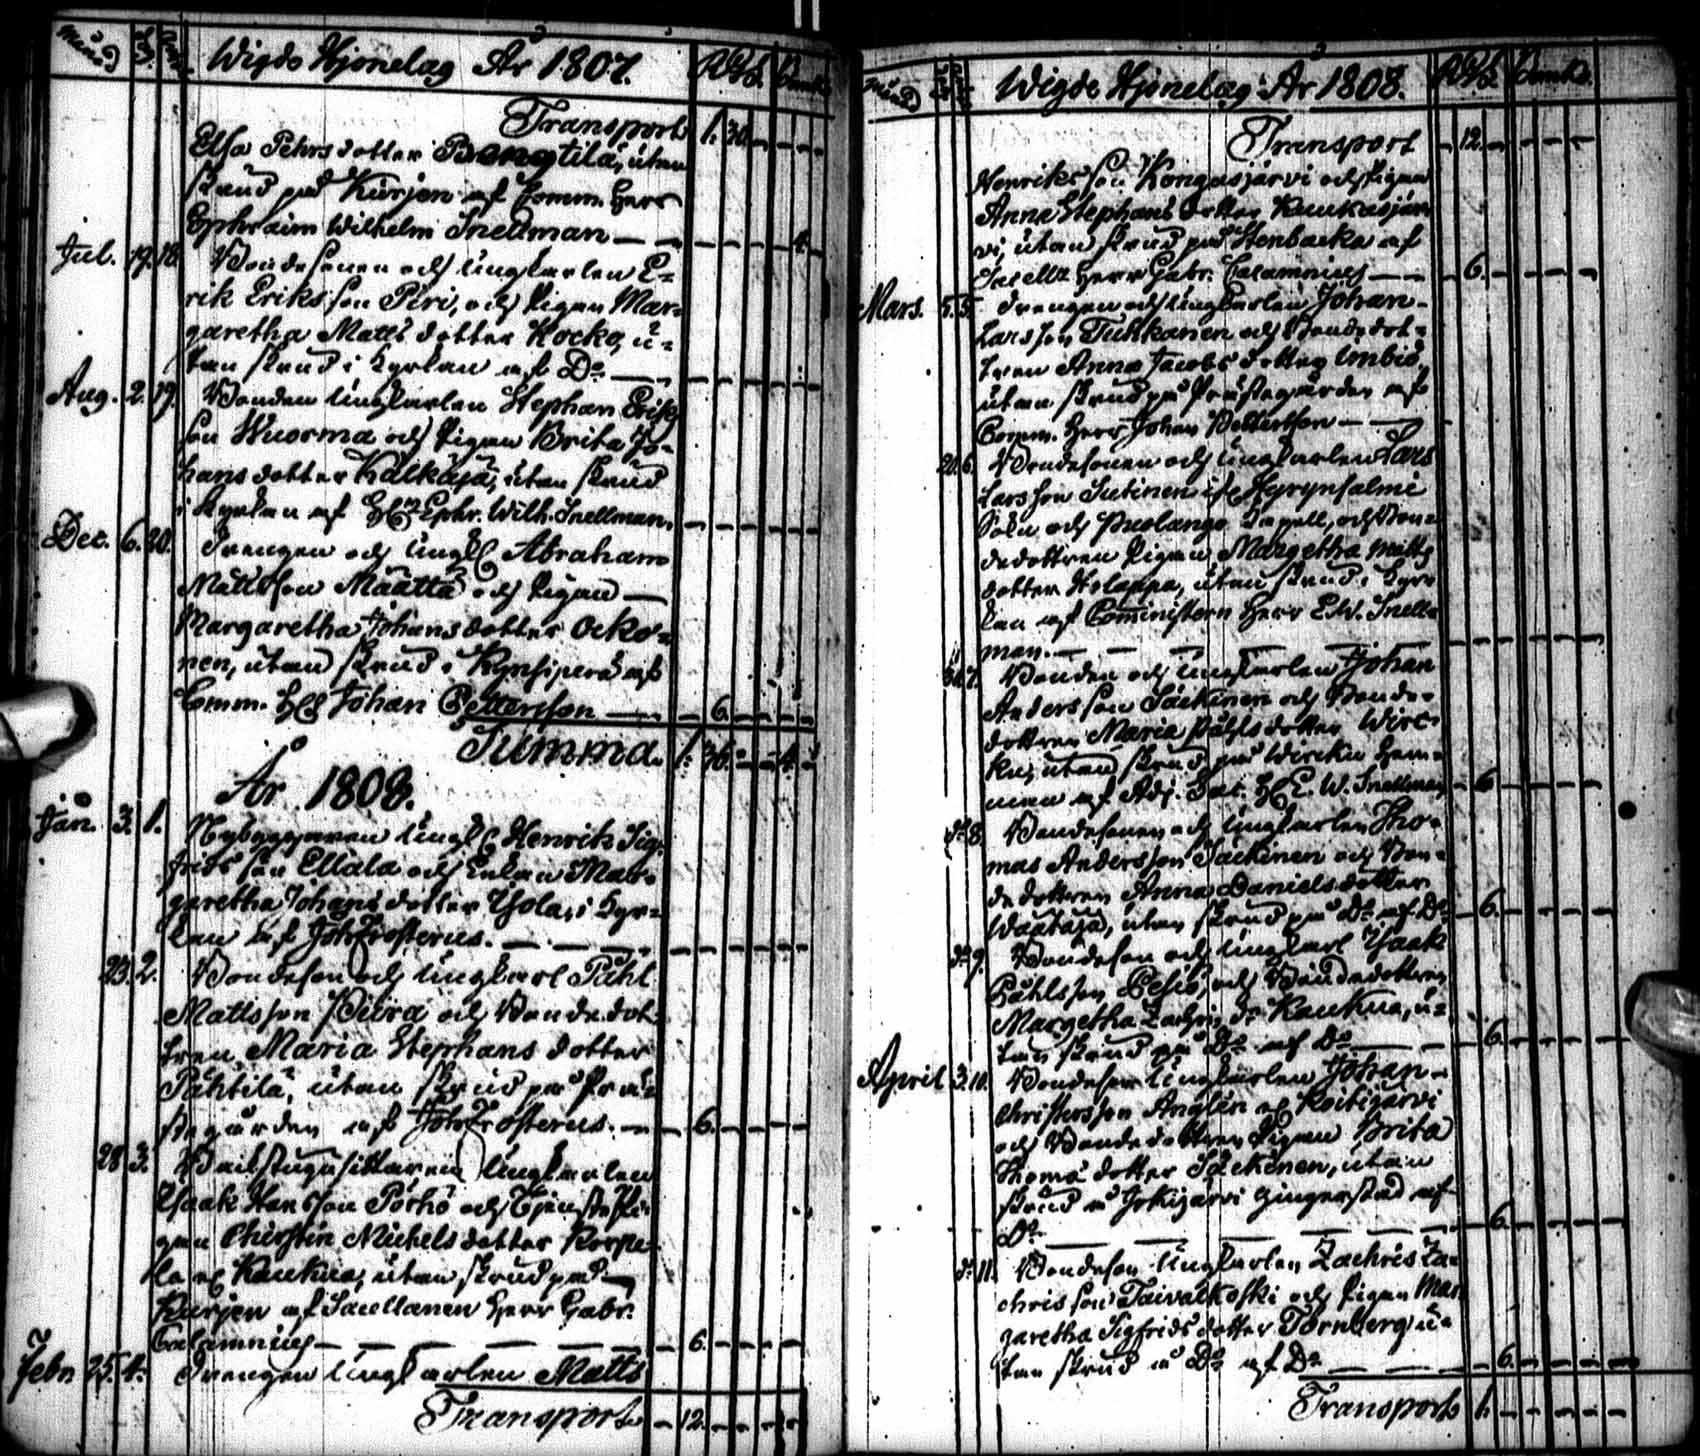 Månad
Wigde Hjonelag År 1807.
Transport 1. 30.
Elsa Pehrs dotter Pongtila, utan
skrud på Kurjen af Comm. Herr
Ephraim Wilhelm Snellman — — 4.
Jul. 19. 18. Bondesonen och ungkarlen E=
rik Eriksson Piri, och Pigan Mar=
garetha Matts dotter Kocko, u=
tan skrud i Kyrkan af Do —
Aug. 2. 19. Bonden Ungkarlen Stephan Eriks
son Wuorma och Pigan Brita Jo=
hans dotter Kälkäjä, utan skrud
i Kyrkan af Hr Ephr. Wilh. Snellman.
Dec. 6. 20. Drengen och Ungk. Abraham
Mattsson Määttä och Pigan —
Margaretha Johans dotter Ocko=
nen, utan skrud i Kynsiperä af
Comm. Hr Johan Pettersson — 6.
Summa. 1. 36. 4.
År 1808.
Jan. 3. 1. Nybyggaren Ungk. Henrik Sig=
frids son Ellala och Enkan Mar=
garetha Johans dotter Ysola, i Kyr=
kan af Joh Frosterus. — —
23. 2. Bondeson och ungkarl Påhl
Matts son Piira och Bondedot=
tren Maria Stephans dotter
Pähtilä, utan skrud på Prä=
stegården af Joh Frosterus. — 6.
28. 3. Backstugusittaren Ungkarlen
Isaak Hansson Pörhö och Tjenstepi=
gan Christin Michels dotter Korpe=
la af Kaukua, utan skrud på —
Kurjen af Sacellanen Herr Gabr.
Calamnius — — — 6.
Febr. 25. 4. Drengen Ungkarlen Matts
Transport 12.
Månad
Wigde Hjonelag År 1808.
Transport 12.
Henriks son Kongasjärvi och Pigan
Anna Stephans dotter Kaukasjär
vi, utan skrud på Stenbacka af
Sacell. Herr Gabr. Calamnius — 6.
Mars. 5. 5. Drengen och Ungkarlen Johan
Larsson Tuhkanen och Bondedot=
tren Anna Jacobs dotter Imbiö,
utan skrud på Prästegården af
Comm. Herr Johan Pettersson —
20. 6. Bondesonen och Ungkarlen Lars
Larsson Sutinen af Hyrynsalmi
Sokn och Puolango Capell, och Bon=
dedottren Pigan Margetha Matts
dotter Holappa, utan skrud i Kyr=
kan af Comministern Herr E. W. Snell=
man. — — —
7. Bonden och Ungkarlen Johan
Andersson Säckinen och Bonde=
dottren Maria Påhls dotter Wirc=
ku, utan skrud på Wircku Hem=
man af Adj. Sac. Hr E. W. Snellman 6
do 8. Bondesonen och Ungkarlen Tho=
mas Andersson Säckinen och Bon=
dedottren Anna Daniels dotter
Waataja, utan skrud på Do af Do 6.
do 9. Bondeson och Ungkarl Isaak
Påhlsson Pesiö, och Bondedottren
Margetha Zachris dr Kaukua, u=
tan skrud på Do af Do — 6.
April 3. 10. Bondeson Ungkarlen Johan
Christersson Änglén af Koitijärvi
och Bondedottren Pigan Brita
Thoma dotter Säckinen, utan
skrud å Jokijärvi Gingerstad af
Do — — 6.
do 11. Bondeson Ungkarlen Zachris Za=
chris son Taivalkoski och Pigan Mar=
garetha Sigfrids dotter Törnberg u=
tan skrud å Do af Do — 6.
Transport 1.